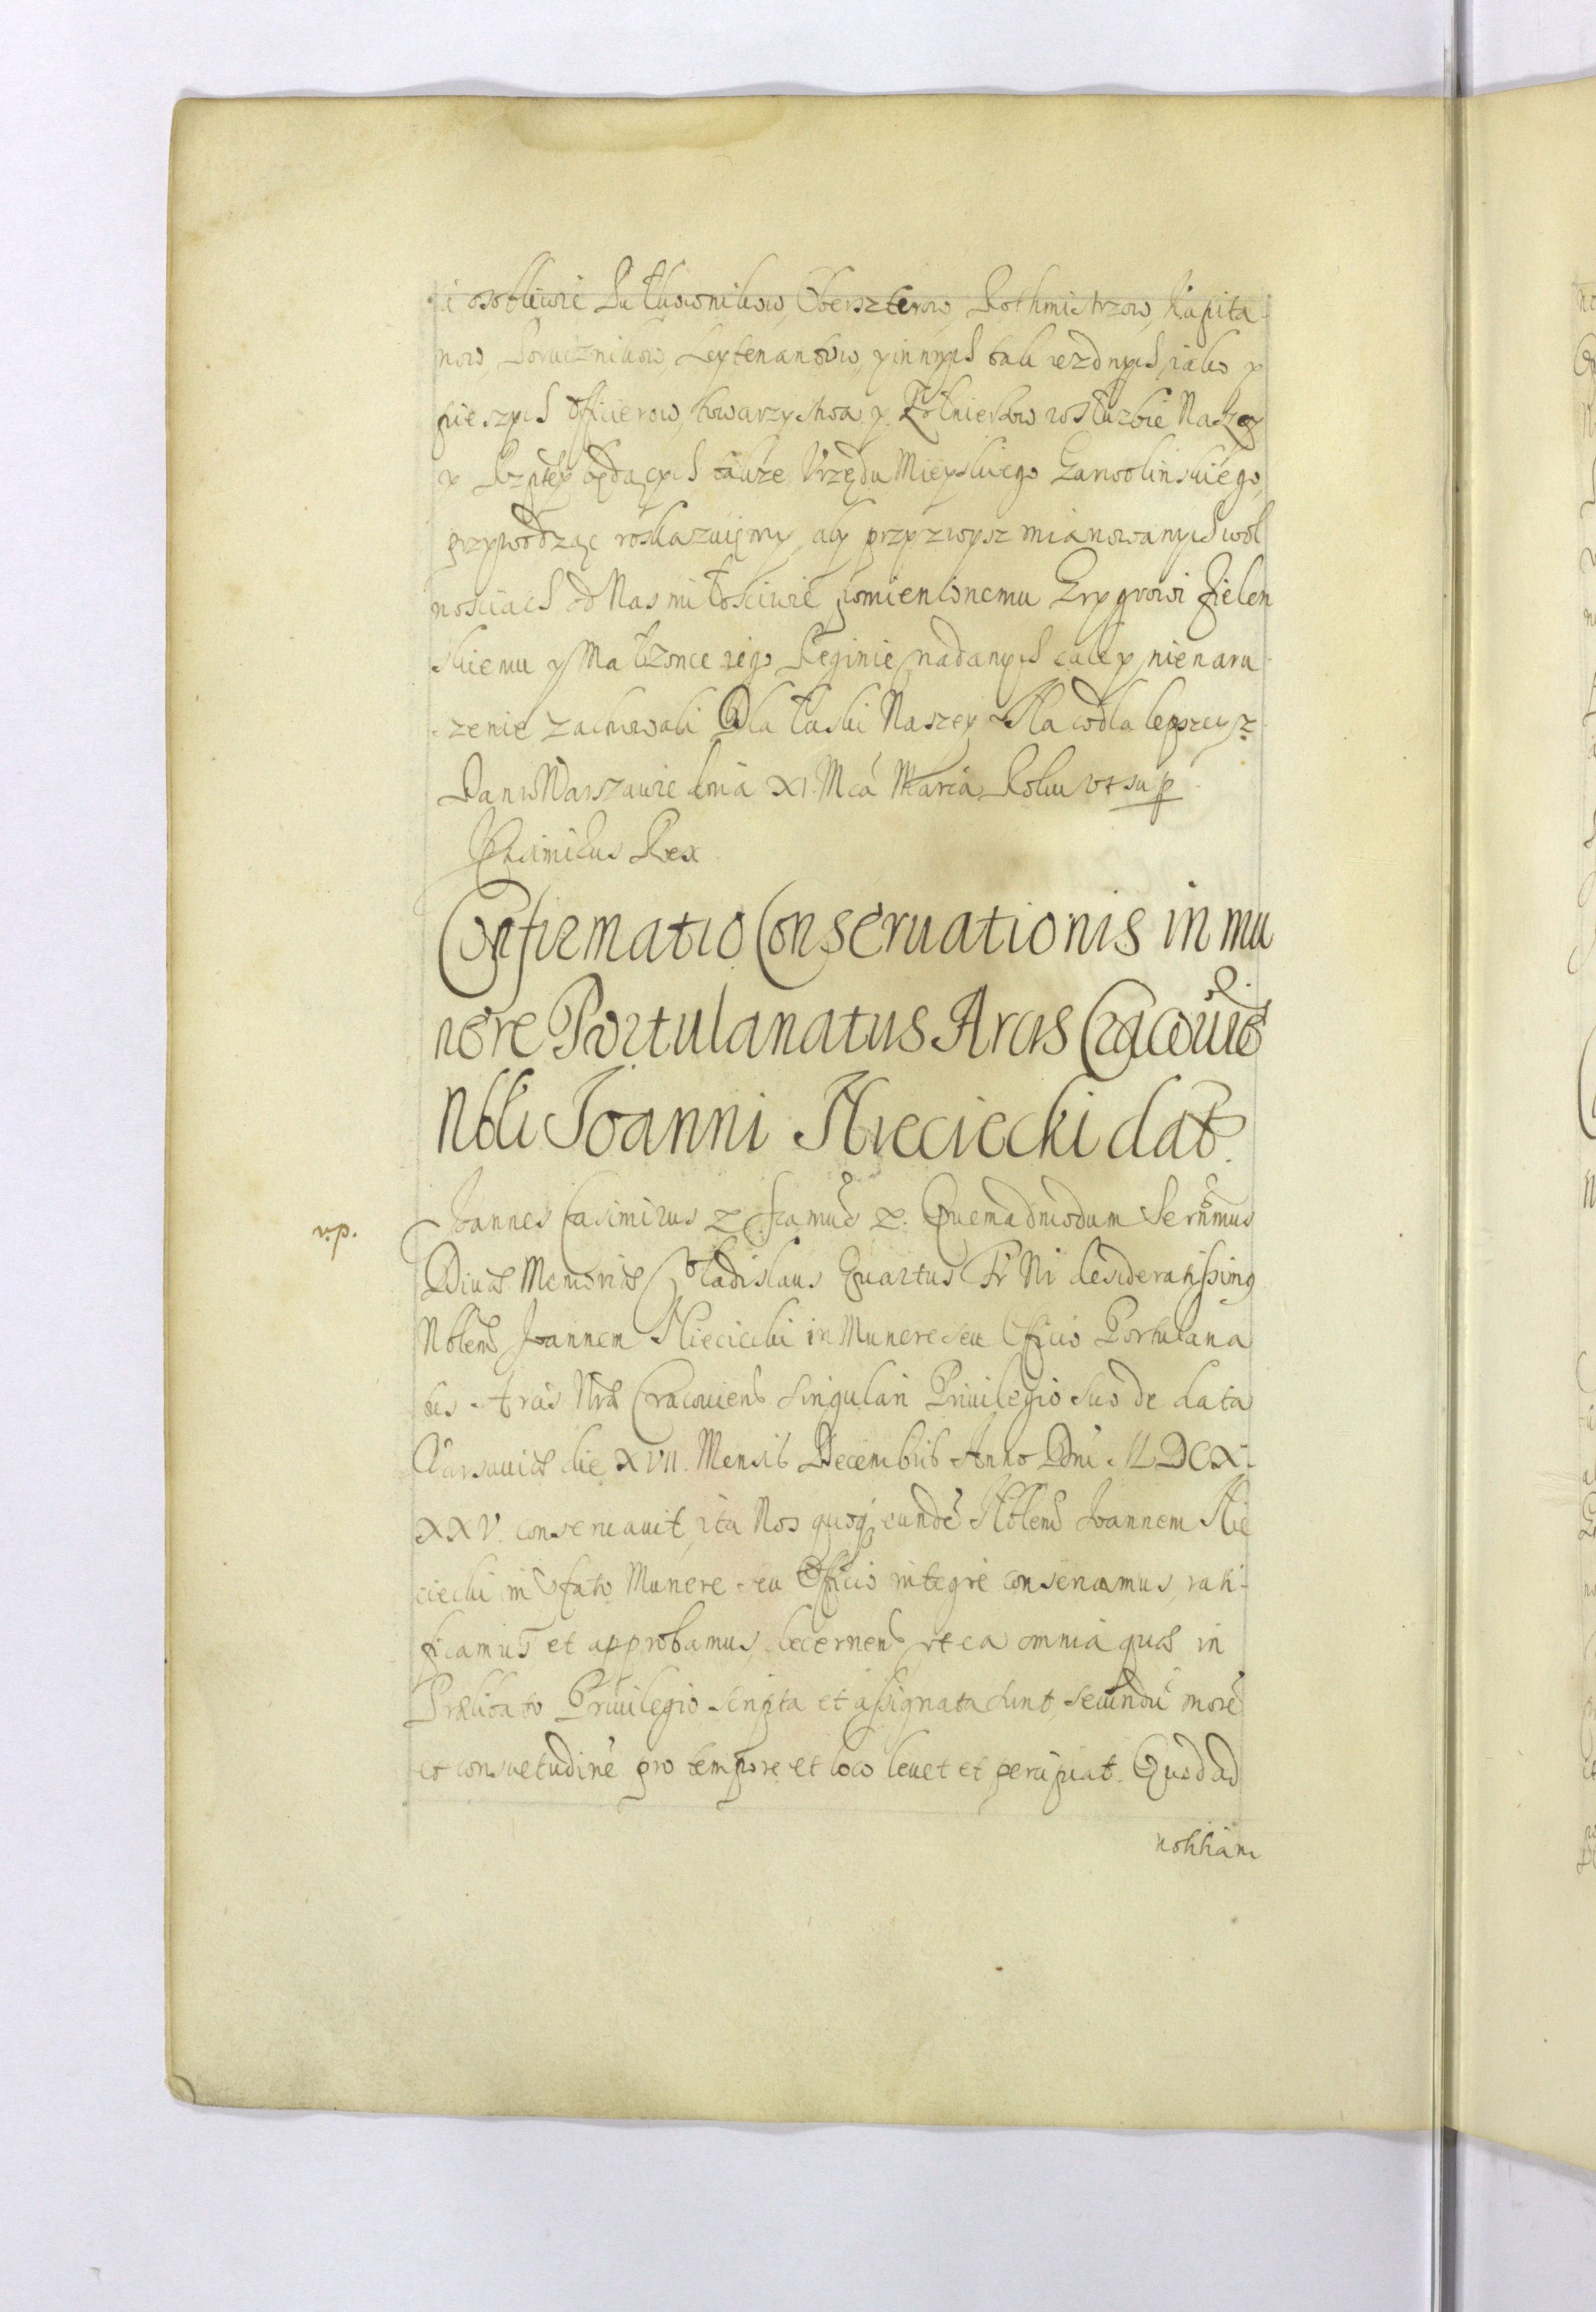 i osobliwie Pułkownikow, Oberszterow, Rothmistrzow, Kapita
now Porucznikow, Leytenantow, y innych tak iezdnych, iako y
pieszych Officierow, towarzystwa y Żołnierzow w służbie Naszey
y Rzptey będących, także Vrzędu Mieyskiego Garwolinskiego,
przywodząc roskazuięmy, aby przy zwysz mianowanych wol
nosciach od Nas miłosciwie pomienionemu Gryg Zielen
skiemu y Małzonce iego Reginie nadanych cale y nienaru
szenie zachowali Dla łaski Naszey Dla lepszey z
Dan w Warszawie dnia XI. Mca Marca, Roku vt sup
Casimirus Rex.
Confirmatio Conseruationis in mu
nere Portulanatus Arcis Cracouien
Nbli Joanni Nieciecki dat.
v.p.
Joannes Casimirus z. famus z. Quemadmodum Sernmus
Diuæ Memoriæ Vladislaus Quartus Fr Nr desideratissimg
Nblem Joannem Nieciecki in Munere seu Officio Portulana
tus Arcis Nræ Cracouiens singulari Priuilegio suo de data
Varsauiæ die XVII. Mensis Decembris Anno Dni MDCX
XXV. conseruauit, ita Nos quoq eunde Nblem Joannem Nie
ciecki in pfato Munere seu Officio integre conseruamus, rati
ficamus et approbamus, decernens vt ea omnia quæ in
Prælibato Priuilegio scripta et assignata sunt, secundu more
et consuetudine pro tempore et loco leuet et percipiat. Quod ad
notitiam